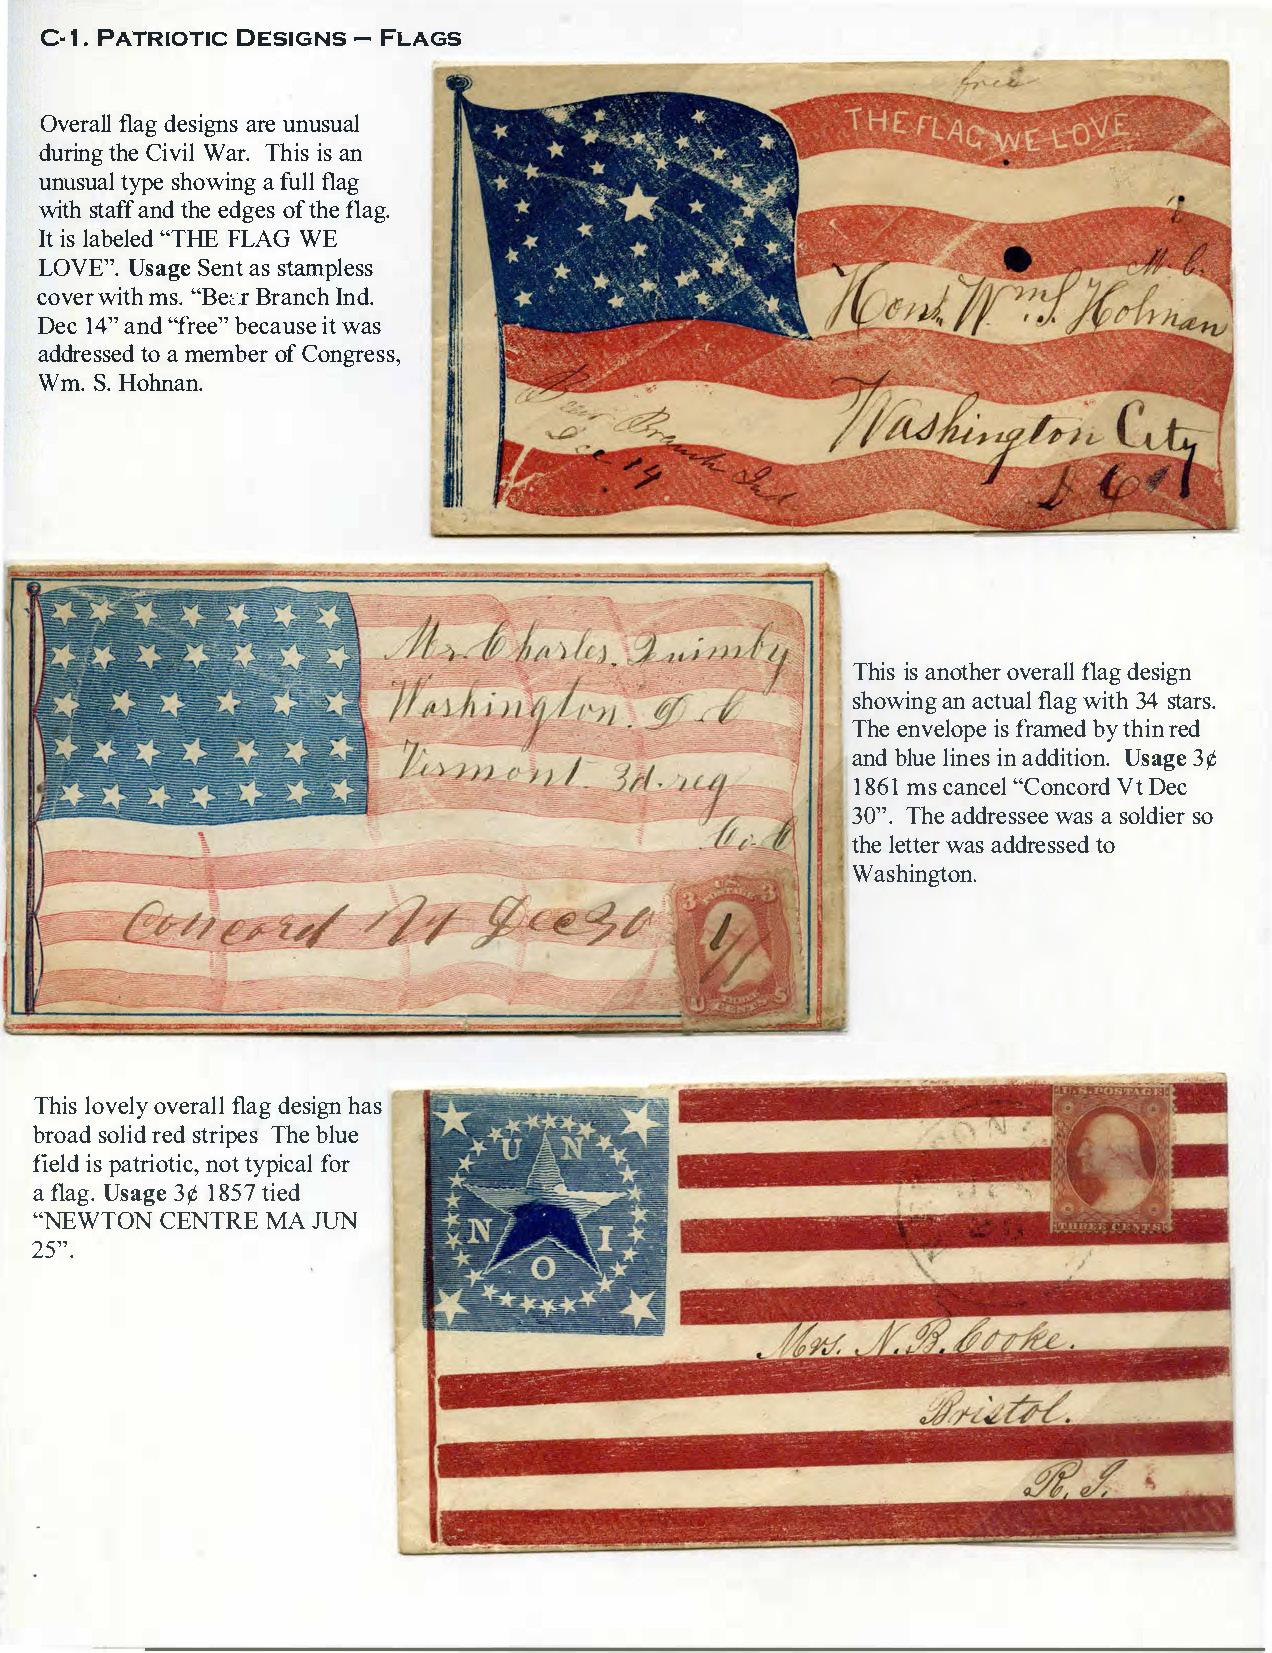 C-1. PATRIOTIC DESIGNS – FLAGS
Overall flag designs are unusual
during the Civil War. This is an
unusual type showing a full flag
with staff and the edges of the flag.
It is labeled “THE FLAG WE
LOVE”. Usage Sent as stampless
cover with ms. “Bear Branch Ind.
Dec 14” and “free” because it was
addressed to a member of Congress,
Wm. S. Hohnan.
free
THE FLAG WE LOVE.
M. C.
Hon. Wm. S. Holman
Washington City
D C
Bear Branch Ind
Dec 14
Mr. Charles Quimby
Washington. D. C
Vermont 3d. reg
Co. C
Concord Vt Dec 30
3 U.S. 3
POSTAGE
U S
CENTS
This is another overall flag design
showing an actual flag with 34 stars.
The envelope is framed by thin red
and blue lines in addition. Usage 3¢
1861 ms cancel “Concord Vt Dec
30”. The addressee was a soldier so
the letter was addressed to
Washington.
This lovely overall flag design has
broad solid red stripes The blue
field is patriotic, not typical for
a flag. Usage 3¢ 1857 tied
“NEWTON CENTRE MA JUN
25”.
UNION
U.S. POSTAGE
THREE CENTS
Mrs. N. B. Cooke.
Bristol.
R. I.